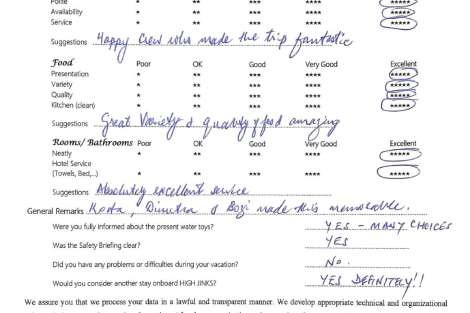 Polite * ** *** **** *****
Availability * ** *** **** *****
Service * ** *** **** *****
Suggestions Happy Crew who made the trip fantastic
Food Poor OK Good Very Good Excellent
Presentation * ** *** **** *****
Variety * ** *** **** *****
Quality * ** *** **** *****
Kitchen (clean) * ** *** **** *****
Suggestions Great Variety & quantity of food amazing
Rooms/Bathrooms Poor OK Good Very Good Excellent
Neatly * ** *** **** *****
Hotel Service
(Towels, Bed,...) * ** *** **** *****
Suggestions Absolutely excellent service
General Remarks Kosta, Dimitra & Bozi made this memorable.
Were you fully informed about the present water toys? YES - MANY CHOICES
Was the Safety Briefing clear? YES
Did you have any problems or difficulties during your vacation? NO.
Would you consider another stay onboard HIGH JINKS? YES DEFINITELY!!
We assure you that we process your data in a lawful and transparent manner. We develop appropriate technical and organizational